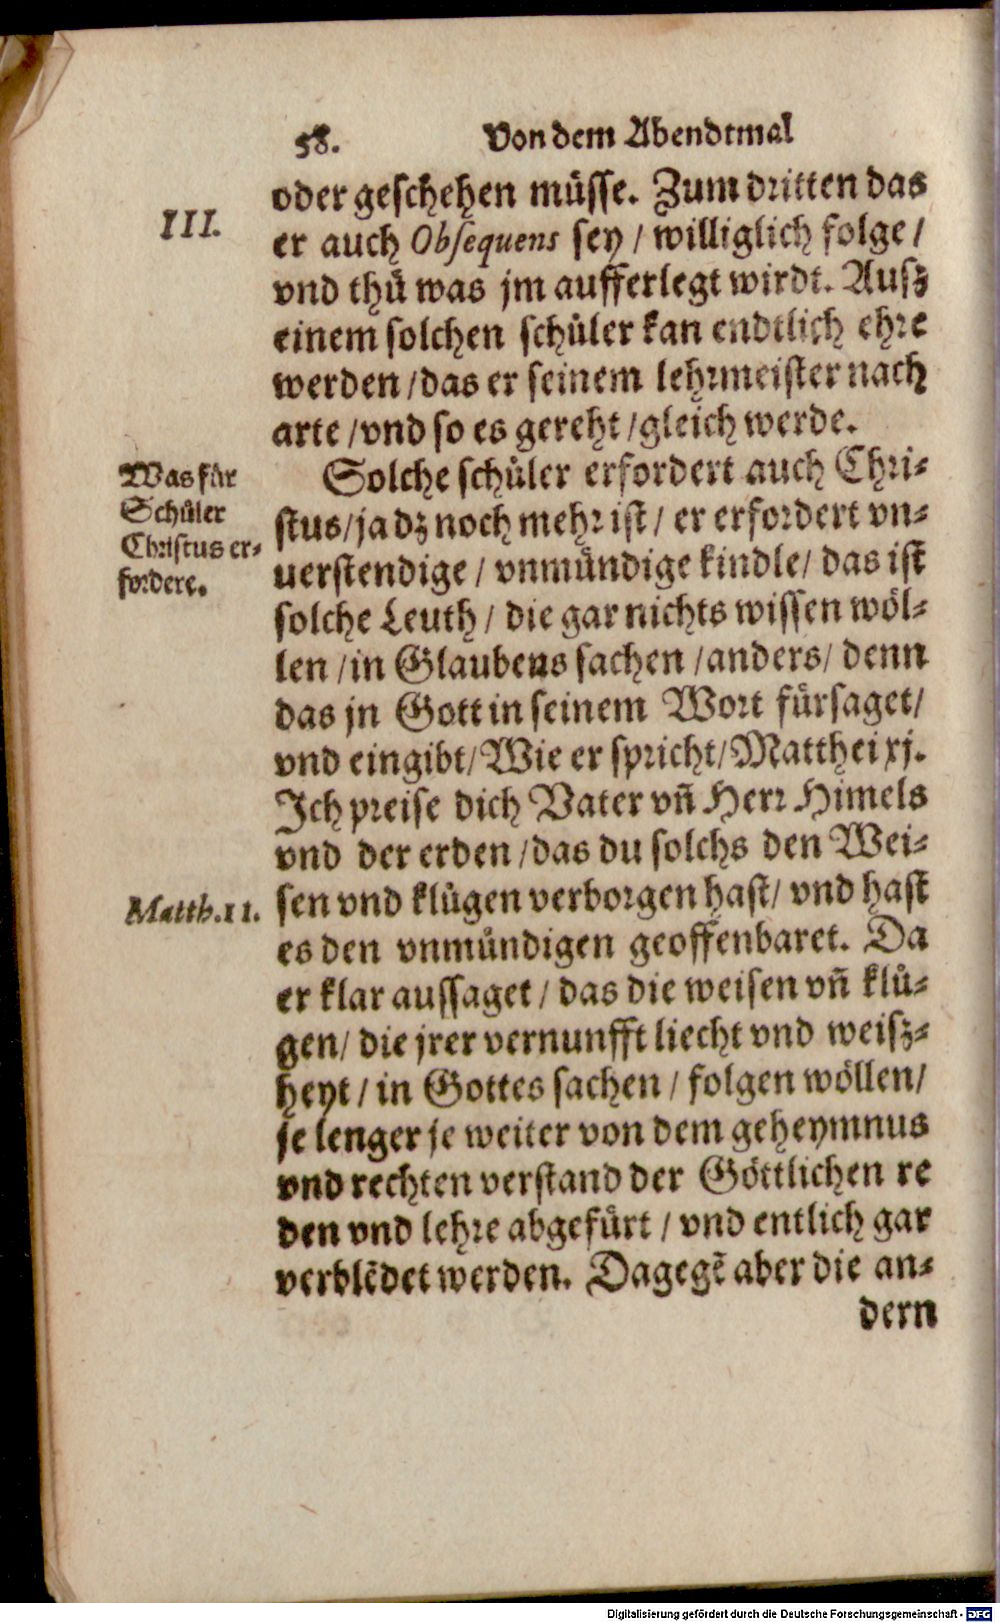 58. Von dem Abendtmal
oder geschehen müsse. Zum dritten das
III.
er auch Obsequens sey / williglich folge /
vnd thů was jm aufferlegt wirdt. Ausz
einem solchen schůler kan endtlich ehre
werden / das er seinem lehrmeister nach
arte / vnd so es gereht / gleich werde.
Was für
Schůler
Christus er⸗
fordere.
Solche schůler erfordert auch Chri⸗
stus / ja dz noch mehr ist / er erfordert vn⸗
uerstendige / vnmündige kindle / das ist
solche Leuth / die gar nichts wissen wöl⸗
len / in Glaubens sachen / anders / denn
das jn Gott in seinem Wort fürsaget /
vnd eingibt / Wie er spricht / Matthei xj.
Ich preise dich Vater vñ Herr Himels
vnd der erden / das du solchs den Wei⸗
Matth. 11.
sen vnd klůgen verborgen hast / vnd hast
es den vnmündigen geoffenbaret. Da
er klar aussaget / das die weisen vñ klů⸗
gen / die jrer vernunfft liecht vnd weisz⸗
heyt / in Gottes sachen / folgen wöllen /
je lenger je weiter von dem geheymnus
vnd rechten verstand der Göttlichen re
den vnd lehre abgefürt / vnd entlich gar
verblēdet werden. Dagegē aber die an⸗
dern
Digitalisierung gefördert durch die Deutsche Forschungsgemeinschaft - DFG